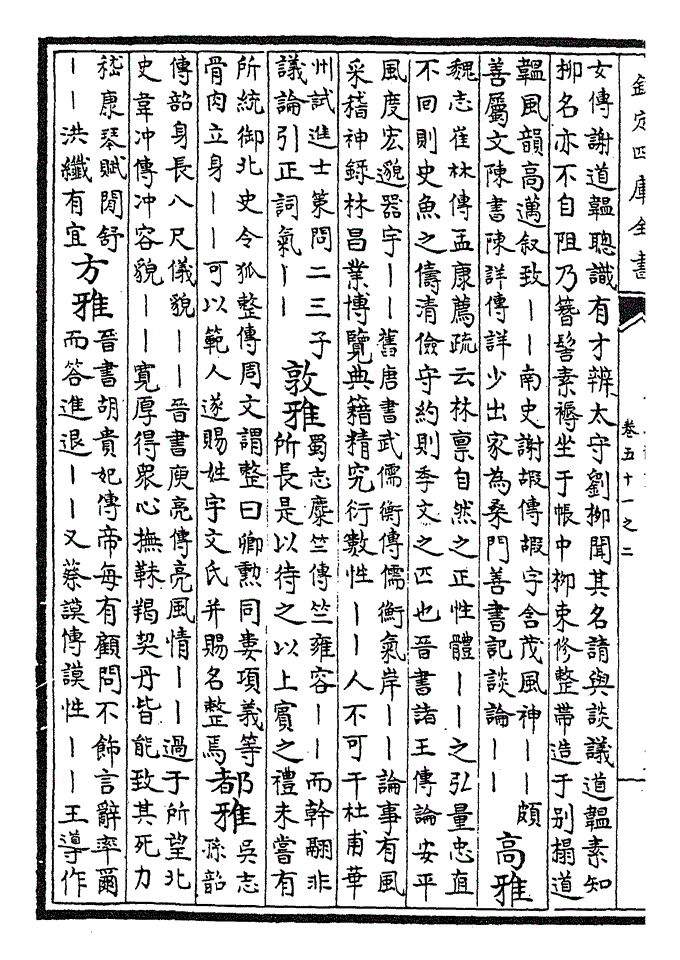 欽定四庫全書
卷五十一之二
女傳謝道韞聰識有才辨太守劉柳聞其名請與談議道韞素知
柳名亦不自阻乃簪髻素褥坐于帳中柳束修整帶造于別榻道
韞風韻高邁叙致——南史謝嘏傳嘏字含茂風神——頗
善屬文陳書陳詳傳詳少出家為桑門善書記談論——
高雅
魏志崔林傳孟康薦疏云林禀自然之正性體——之弘量忠直
不回則史魚之儔清儉守約則季文之匹也晉書諸王傳論安平
風度宏邈器宇——舊唐書武儒衡傳儒衡氣岸——論事有風
采稽神録林昌業博覽典籍精究衍數性——人不可干杜甫華
州試進士策問二三子
議論引正詞氣——
敦雅
蜀志麋竺傳竺雍容——而幹翮非
所長是以待之以上賓之禮未嘗有
所統御北史令狐整傳周文謂整曰卿勲同婁項義等
骨肉立身——可以範人遂賜姓宇文氏并賜名整焉
都雅
吳志
孫韶
傳韶身長八尺儀貌——晉書庾亮傳亮風情——過于所望北
史韋沖傳沖容貌——寛厚得衆心撫靺羯契丹皆能致其死力
嵇康琴賦閒舒
——洪纖有宜
方雅
晉書胡貴妃傳帝每有顧問不飾言辭率爾
而答進退——又蔡謨傳謨性——王導作